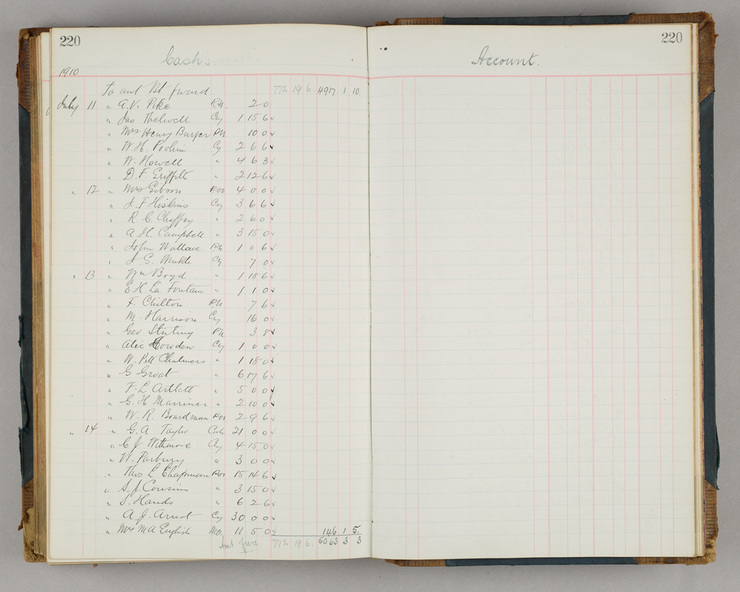 220
Cash
1910
To amt Bt forward 772 19 6 4917 1 10
July 11 " A.V. Pike 2 0
" Jas Thelwell Cq 1 15 6
" Mrs Henry Barger PN 10 0
" W.H. Cq 2 0 6
" W. Howell " 4 6 3
" D.F. Griffith " 2 12 6
" 12 " Mrs Gibson 4 0 0
" J.F. Hiskins Cq 3 6 6
" R.C. Cheffey " 2 6 0
" A.H. Campbell " 3 15 0
" John Wallace PN 1 0 6
" J.G. Cq 7 0
" 13 " Wm Boyd " 1 18 6
" E.H. La Fontaine " 1 1 0
" F. Chilton PN 7 6
" M. Harrison Cq 16 0
" Geo PN 3
" Alic Cowden Cq 1 0 0
" W. Pitt Chalmers " 1 15 0
" G Groat " 6 17 6
" F.L. Artlett " 5 0 0
" G.H. Marriner " 2 10 0
" W.R. Boardman 2 9 6
" 14 " G.A. Taylor 21 0 0
" C.J. Withmore Cq 4 15 0
" W. Parbury " 3 0 0
" Thos L Chapman 15 14 6
" S.J. Cousins " 3 15 0
" S. Hands " 6 2 6
" A.J. Arnot Cq 30 0 0
" Mrs M A English 11 5 0 146 1 5
Amt fwd 772 19 6 5063 3 3
220
Account.